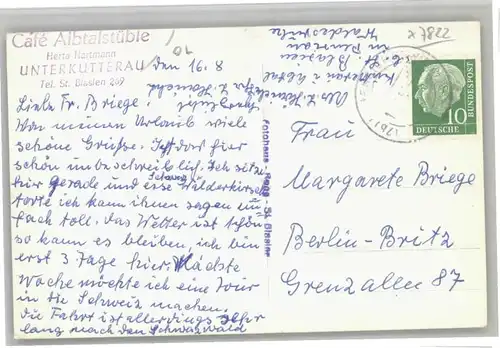 Café Albtalstüble
Herta Hartmann
UNTERKUTTERAU
Tel. St. Blasien 269
x 7822
den 16. 8
Liebe Fr. Briege!
Von meinen Urlaub viele
schöne Grüße. Ist dort hier
schön unbeschreiblich. Ich sitze
hier gerade und esse Schwarz
wälderkirsch
torte ich kann ihnen sagen ein
fach toll. Das Wetter ist schön
so kann es bleiben, ich bin
erst 3 Tage hier. Nächste
Woche möchte ich eine Tour
in die Schweiz machen,
die Fahrt ist allerdings
lang nach den Schwarzwald
in Pension
Waldesruhe
St. Blasien
Fotohaus St. Blasien
DEUTSCHE BUNDESPOST
10
Frau
Margarete Briege
Berlin-Britz
Grenzallee 87